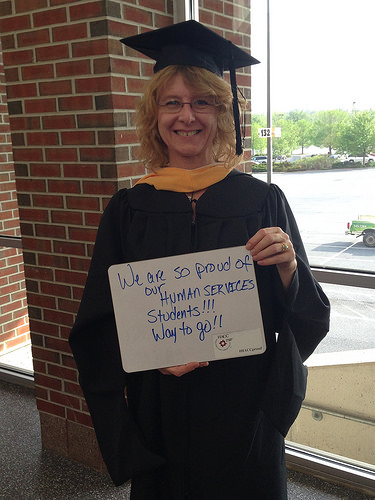 We are so proud of
our HUMAN SERVICES
Students!!!
Way to go!!
132